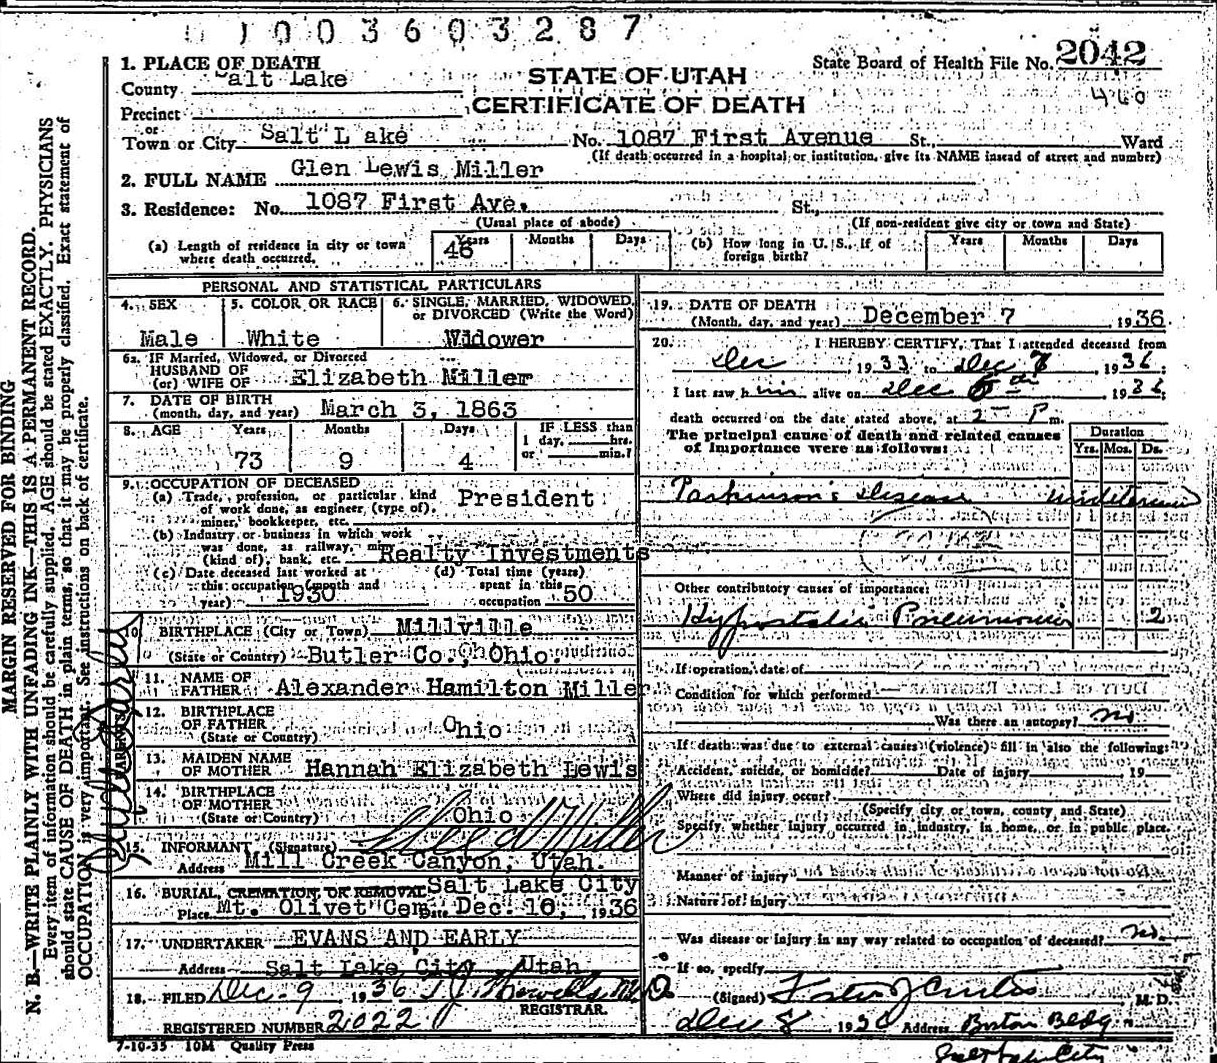 1003603287
1. PLACE OF DEATH
State Board of Health File No. 2042
County Salt Lake
STATE OF UTAH
460
CERTIFICATE OF DEATH
Precinct
or
Town or City Salt Lake No. 1087 First Avenue St., Ward
(If death occurred in a hospital or institution, give its NAME insead of street and number)
2. FULL NAME Glen Lewis Miller
3. Residence: No. 1087 First Ave. St.,
(Usual place of abode) (If non-resident give city or town and State)
(a) Length of residence in city or town where death occurred. 46 Years Months Days
(b) How long in U. S., if of foreign birth? Years Months Days
PERSONAL AND STATISTICAL PARTICULARS
4. SEX Male
5. COLOR OR RACE White
6. SINGLE, MARRIED, WIDOWED, or DIVORCED (Write the Word) Widower
6a. IF Married, Widowed, or Divorced
HUSBAND OF
(or) WIFE OF Elizabeth Miller
7. DATE OF BIRTH
(month, day, and year) March 3, 1863
8. AGE Years Months Days IF LESS than
1 day, hrs.
or min.?
73 9 4
9. OCCUPATION OF DECEASED
(a) Trade, profession, or particular kind
of work done, as engineer, (type of),
miner, bookkeeper, etc. President
(b) Industry or business in which work
was done, as railway,
(kind of), bank, etc. Realty Investments
(c) Date deceased last worked at
this occupation (month and
year) 1930
(d) Total time (years)
spent in this
occupation 50
10. BIRTHPLACE (City or Town) Millville
(State or Country) Butler Co., Ohio.
PARENTS
11. NAME OF
FATHER Alexander Hamilton Miller
12. BIRTHPLACE
OF FATHER
(State or Country) Ohio
13. MAIDEN NAME
OF MOTHER Hannah Elizabeth Lewis
14. BIRTHPLACE
OF MOTHER
(State or Country) Ohio
15. INFORMANT (Signature) Miller
Address Mill Creek Canyon, Utah.
16. BURIAL, CREMATION, OR REMOVAL Salt Lake City
Place Mt. Olivet Cem. Date Dec. 10, 1936
17. UNDERTAKER EVANS AND EARLY
Address Salt Lake City, Utah
18. FILED Dec. 9 1936
REGISTRAR.
REGISTERED NUMBER 2022
7-10-35 10M Quality Press
19. DATE OF DEATH
(Month, day, and year) December 7, 1936
20. I HEREBY CERTIFY, That I attended deceased from
Dec, 1933 to Dec 7, 1936.
I last saw him alive on Dec 6th 1936;
death occurred on the date stated above, at 2 P m.
The principal cause of death and related causes
of importance were as follows:
Duration
Yrs. Mos. Ds.
Parkinson's Disease
Other contributory causes of importance:
Hypostatic Pneumonia 2
If operation, date of
Condition for which performed
Was there an autopsy? no
If death was due to external causes (violence) fill in also the following:
Accident, suicide, or homicide? Date of injury 19
Where did injury occur?
(Specify city or town, county and State)
Specify whether injury occurred in industry, in home, or in public place.
Manner of injury
Nature of injury
Was disease or injury in any way related to occupation of deceased? no.
If so, specify
(Signed) Foster J Curtis M. D.
Dec 8 1936 Address Boston Bldg
Salt Lake City
MARGIN RESERVED FOR BINDING
N. B.—WRITE PLAINLY WITH UNFADING INK—THIS IS A PERMANENT RECORD.
Every item of information should be carefully supplied. AGE should be stated EXACTLY. PHYSICIANS
should state CAUSE OF DEATH in plain terms, so that it may be properly classified. Exact statement of
OCCUPATION is very important. See instructions on back of certificate.